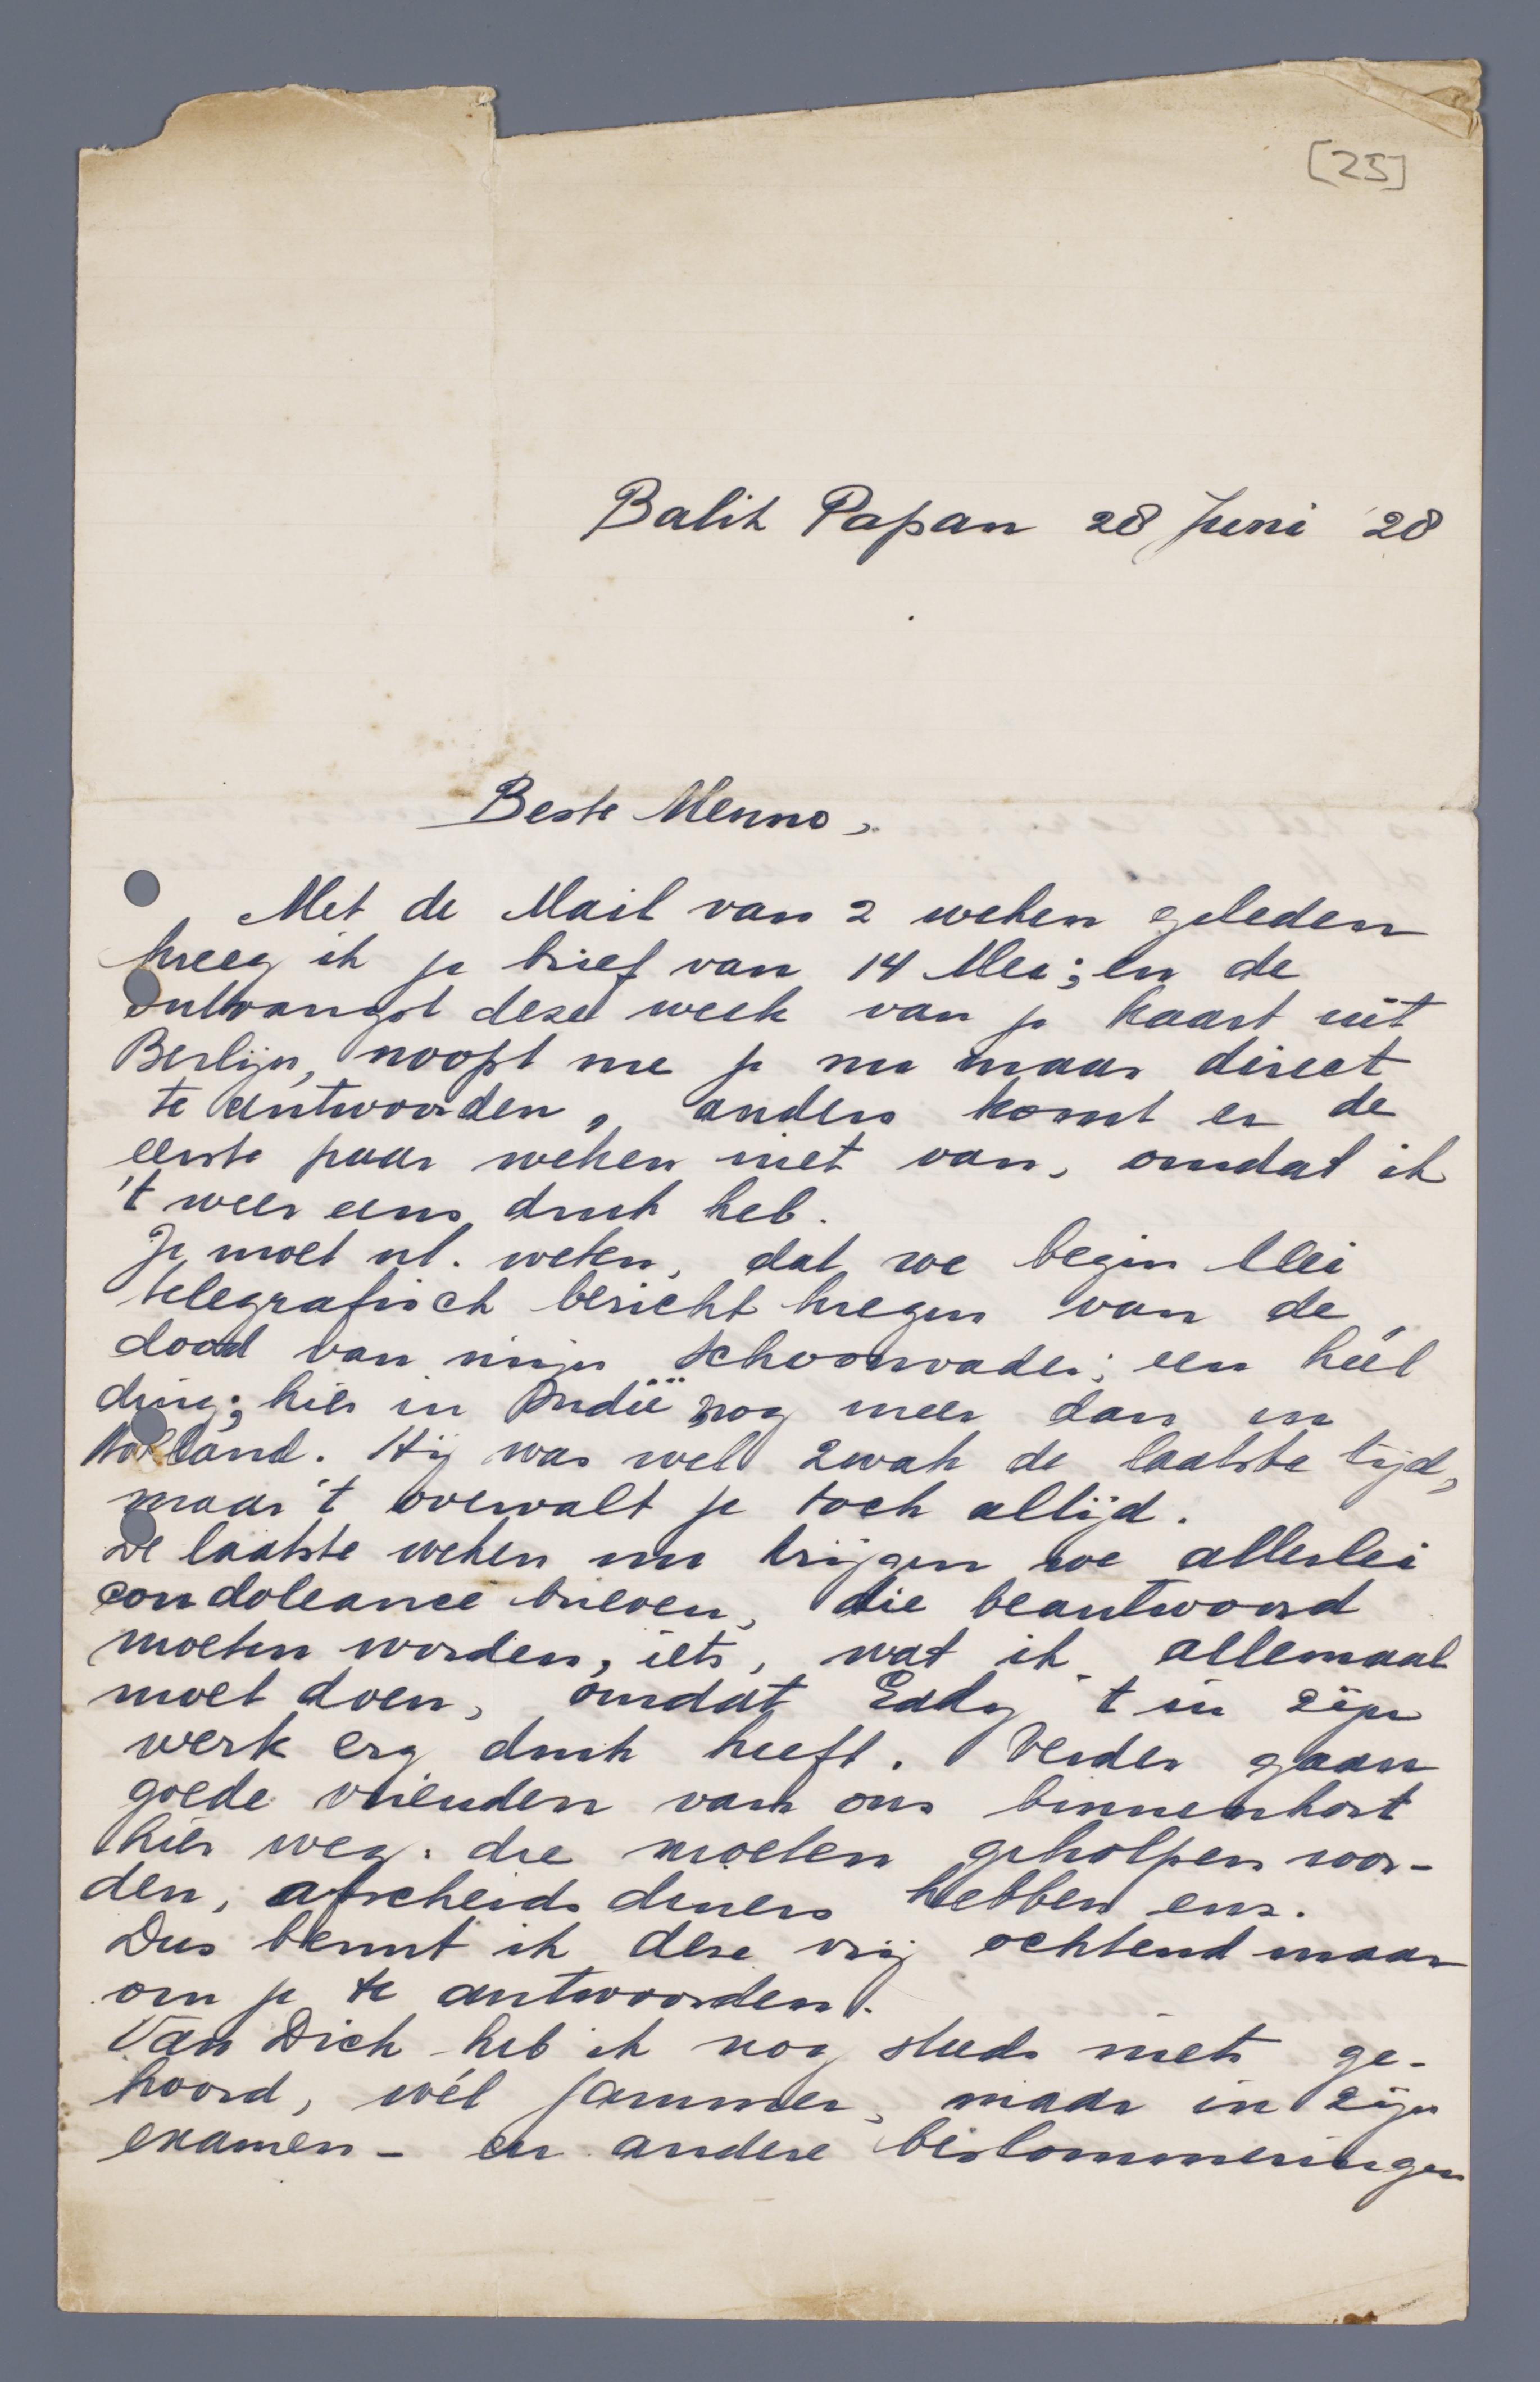 [25]
Balik Papan 28 Juni '28
Beste Menno,
Met de Mail van 2 weken geleden
kreeg ik je brief van 14 Mei; en de
ontvangst deze week van je kaart uit
Berlijn, noopt me je nu maar direct
te antwoorden, anders komt er de
eerste paar weken niet van, omdat ik
't weer eens druk heb.
Je moet nl. weten, dat we begin Mei
telegrafisch bericht kregen van de
dood van mijn schoonvader; een héél
ding; hier in Indië nog meer dan in
Holland. Hij was wel zwak de laatste tijd,
maar 't overvalt je toch altijd.
De laatste weken nu krijgen we allerlei
condoleance brieven, die beantwoord
moeten worden, iets, wat ik allemaal
moet doen, omdat Eddy 't in zijn
werk erg druk heeft. Verder gaan
goede vrienden van ons binnenkort
hier weg. die moeten geholpen wor-
den, afscheids diners hebben enz.
Dus benut ik deze vrij ochtend maar
om je te antwoorden.
Van Dick heb ik nog steeds niets ge-
hoord, wél jammer, maar in zijn
examen- en andere beslommeringen